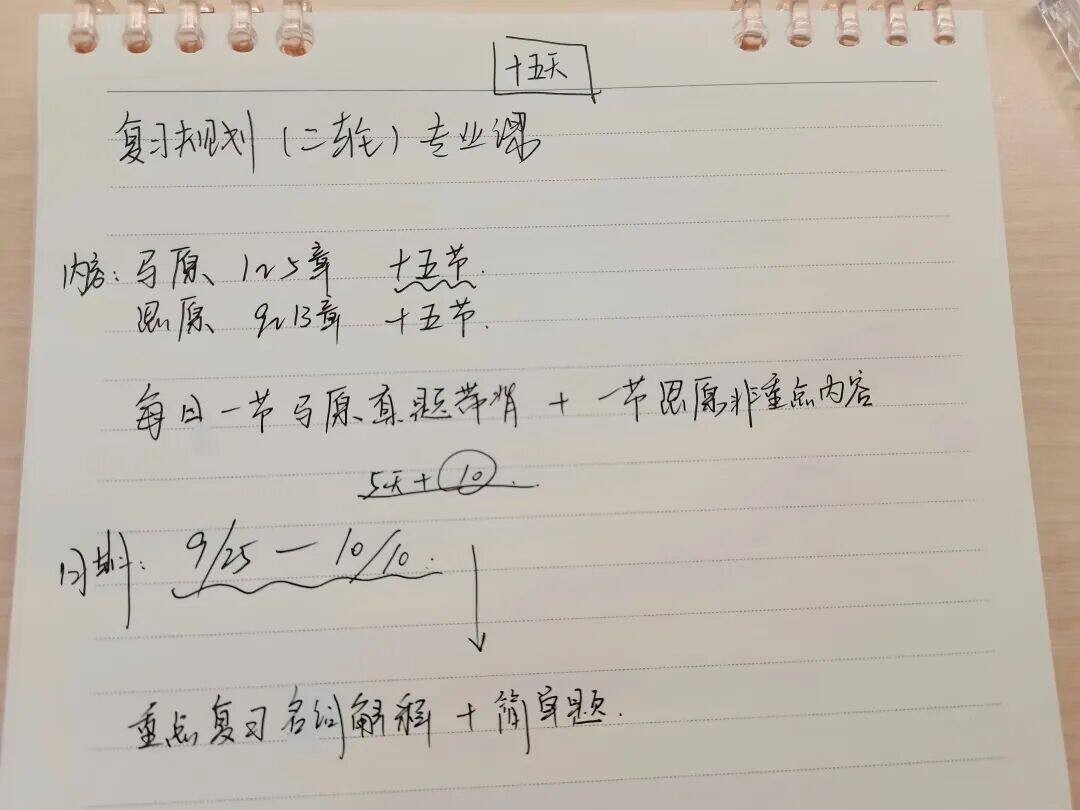 十五天
复习规划（二轮）专业课
内容：马原、1~5章 十五节.
思原、9~13章 十五节.
每日一节马原真题带背 + 一节思原非重点内容
5天+10.
日期：9/25 — 10/10.
重点复习名词解释 + 简单题.